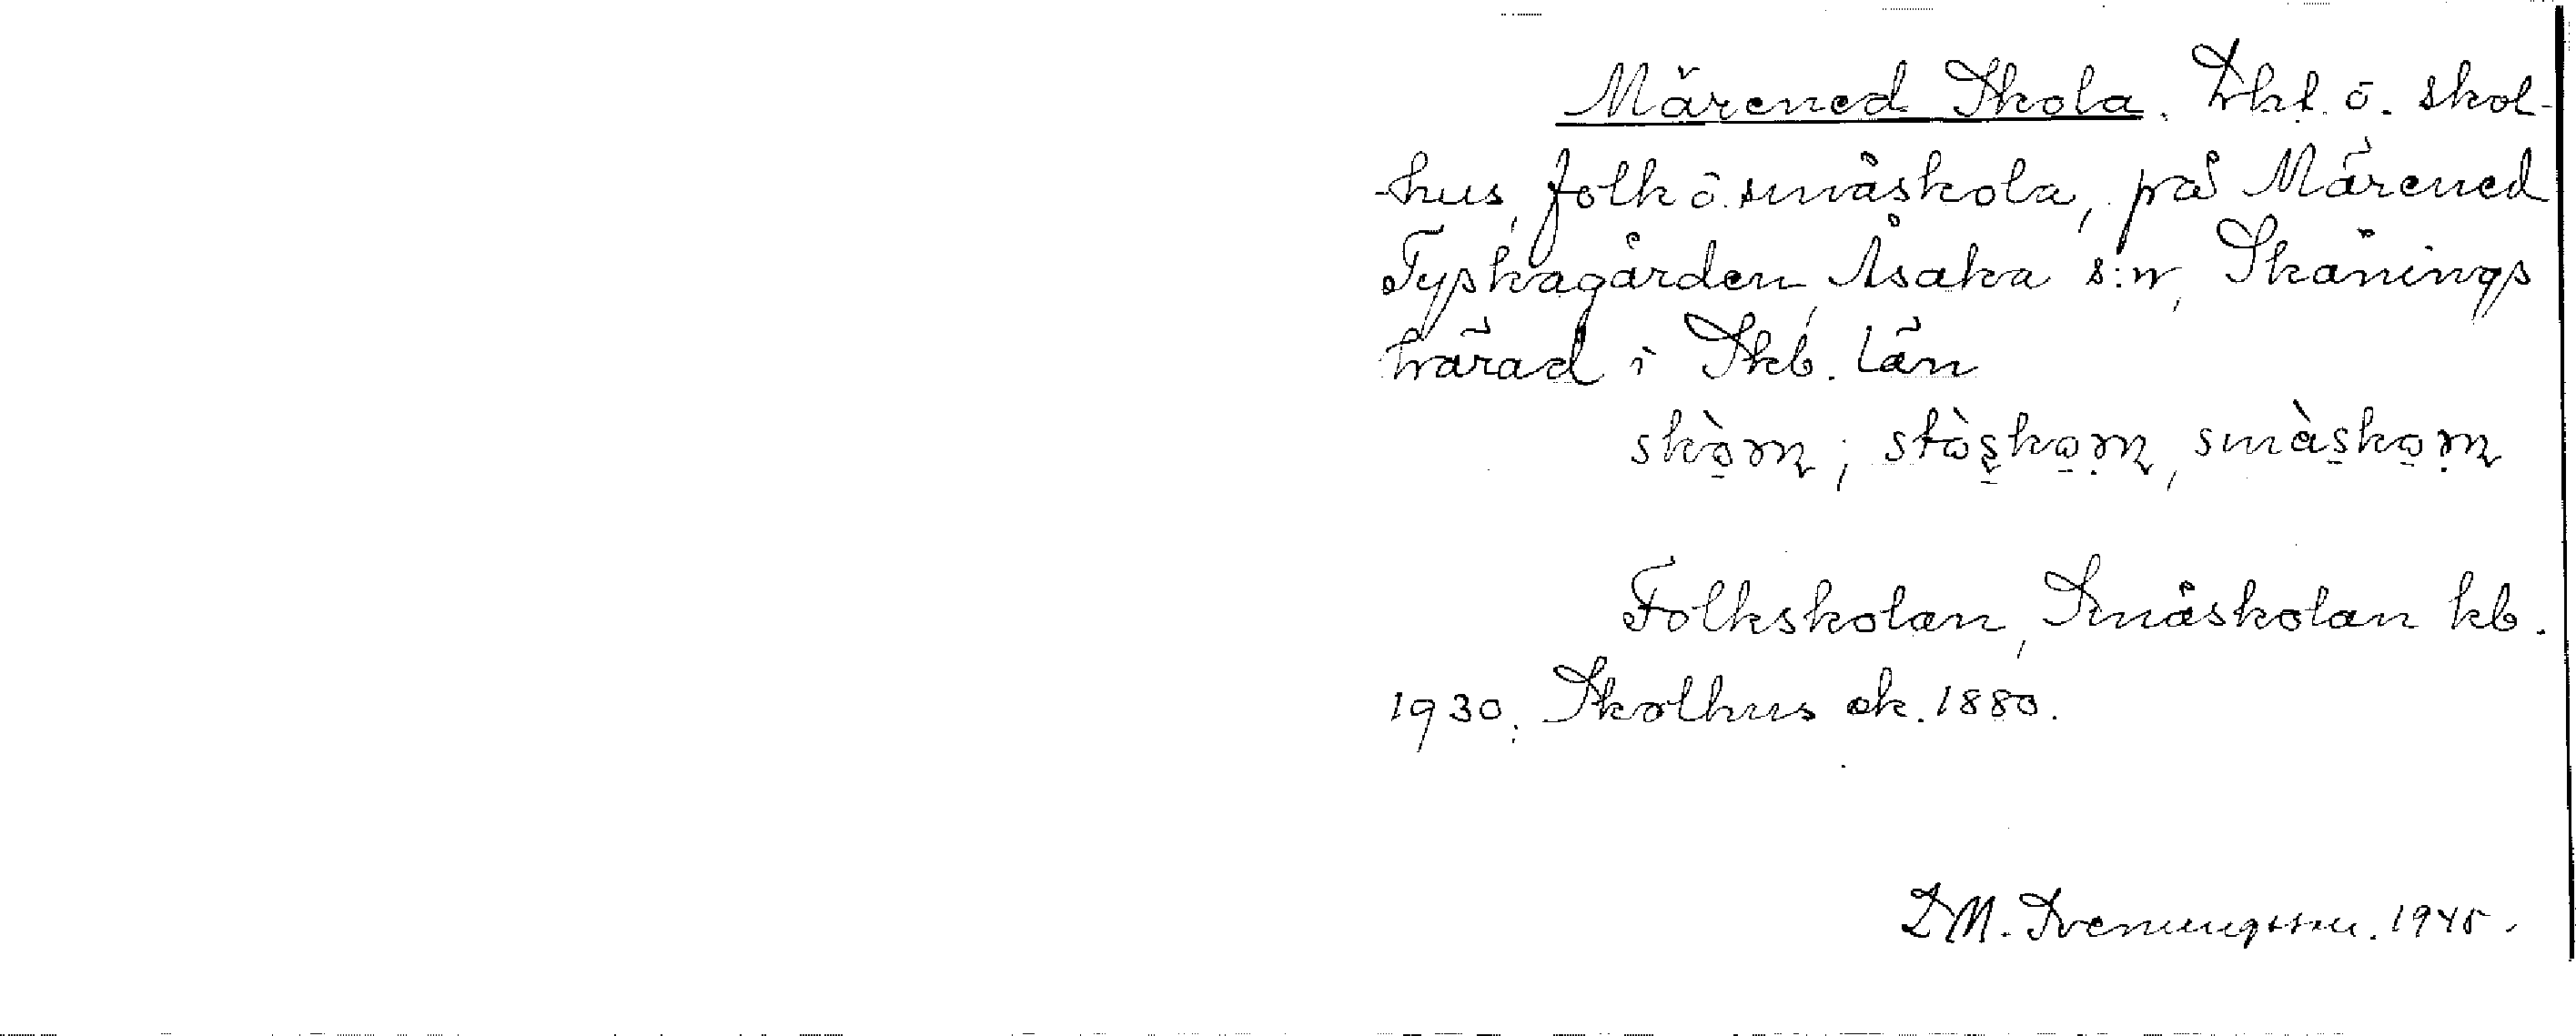 Märened Skola. Trkt. o. skol-
-hus, folk o. småskola, på Märened
Tyskagården, Åsaka s:n, Skånings
härad i Skb. län
skò̱m; stòs̱ko̱m, smàs̱ko̱m
Folkskolan, Småskolan kb.
1930. Skolhus ek. 1880.
D M. Svenungsson. 1945.